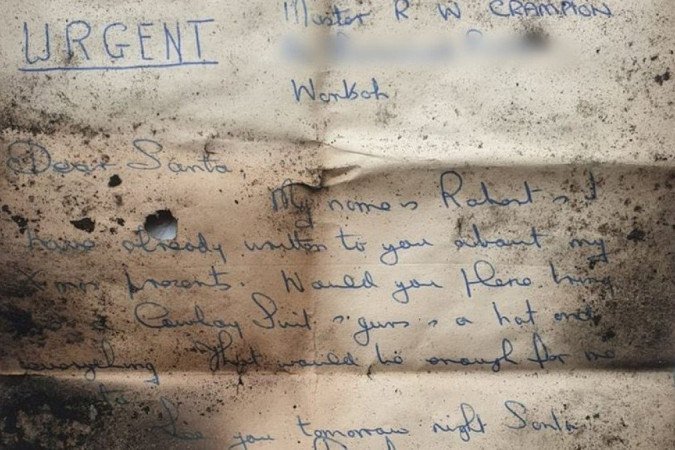 URGENT
Master R W CRAMPION
Worksop
Dear Santa
My name is Robert & I
have already written to you about my
Xmas presents. Would you please bring
me a Cowboy Suit & guns & a hat and
everything. That would be enough for me
See you tomorrow night Santa